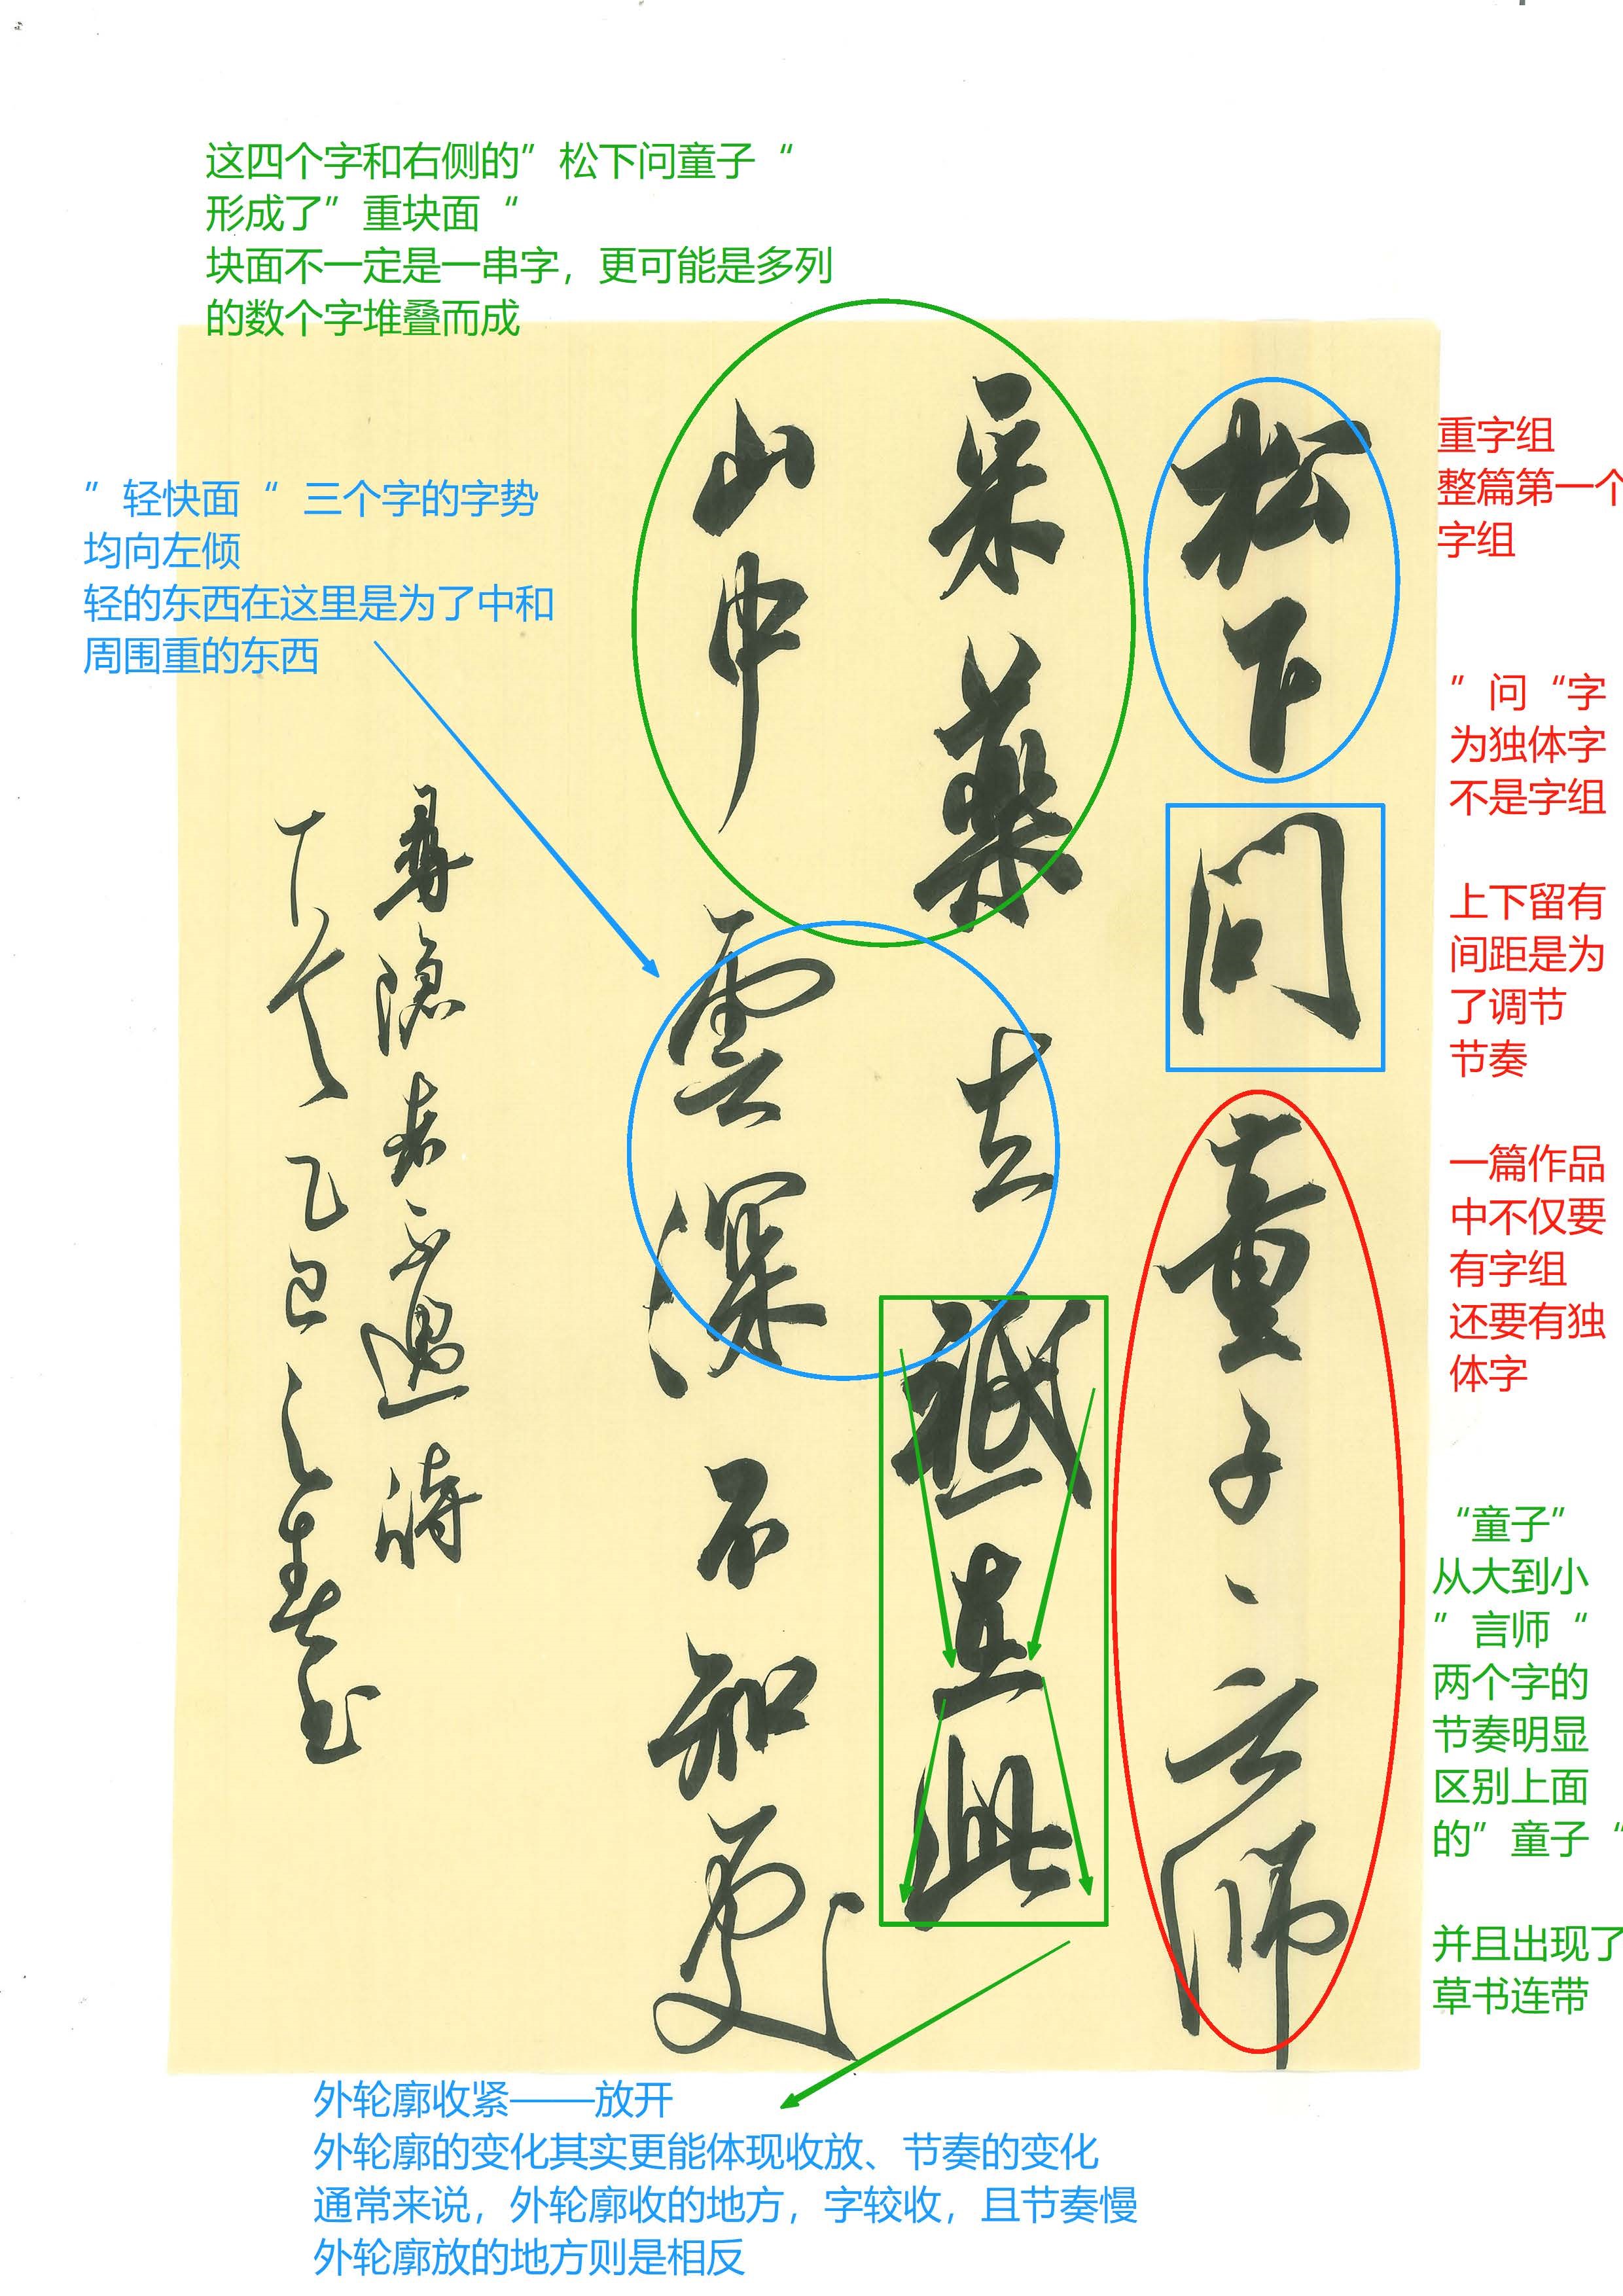 这四个字和右侧的”松下问童子“
形成了”重块面“
块面不一定是一串字，更可能是多列
的数个字堆叠而成
”轻快面“ 三个字的字势
均向左倾
轻的东西在这里是为了中和
周围重的东西
重字组
整篇第一个
字组
”问“字
为独体字
不是字组
上下留有
间距是为
了调节
节奏
一篇作品
中不仅要
有字组
还要有独
体字
“童子”
从大到小
”言师“
两个字的
节奏明显
区别上面
的”童子“
并且出现了
草书连带
松下問童子言師
采藥去祗在此
山中雲深不知處
尋隱者不遇詩
乙巳之春
外轮廓收紧——放开
外轮廓的变化其实更能体现收放、节奏的变化
通常来说，外轮廓收的地方，字较收，且节奏慢
外轮廓放的地方则是相反